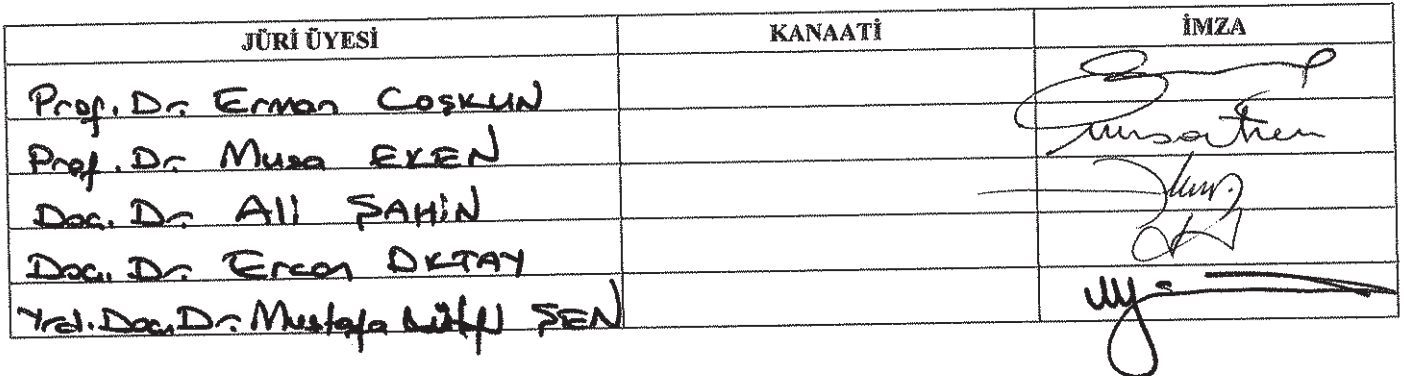 JÜRİ ÜYESİ KANAATİ İMZA
Prof. Dr. Erman COŞKUN
Prof. Dr. Musa EKEN
Doç. Dr. Ali ŞAHİN
Doç. Dr. Ercan OKTAY
Yrd. Doç. Dr. Mustafa Lütfi ŞEN